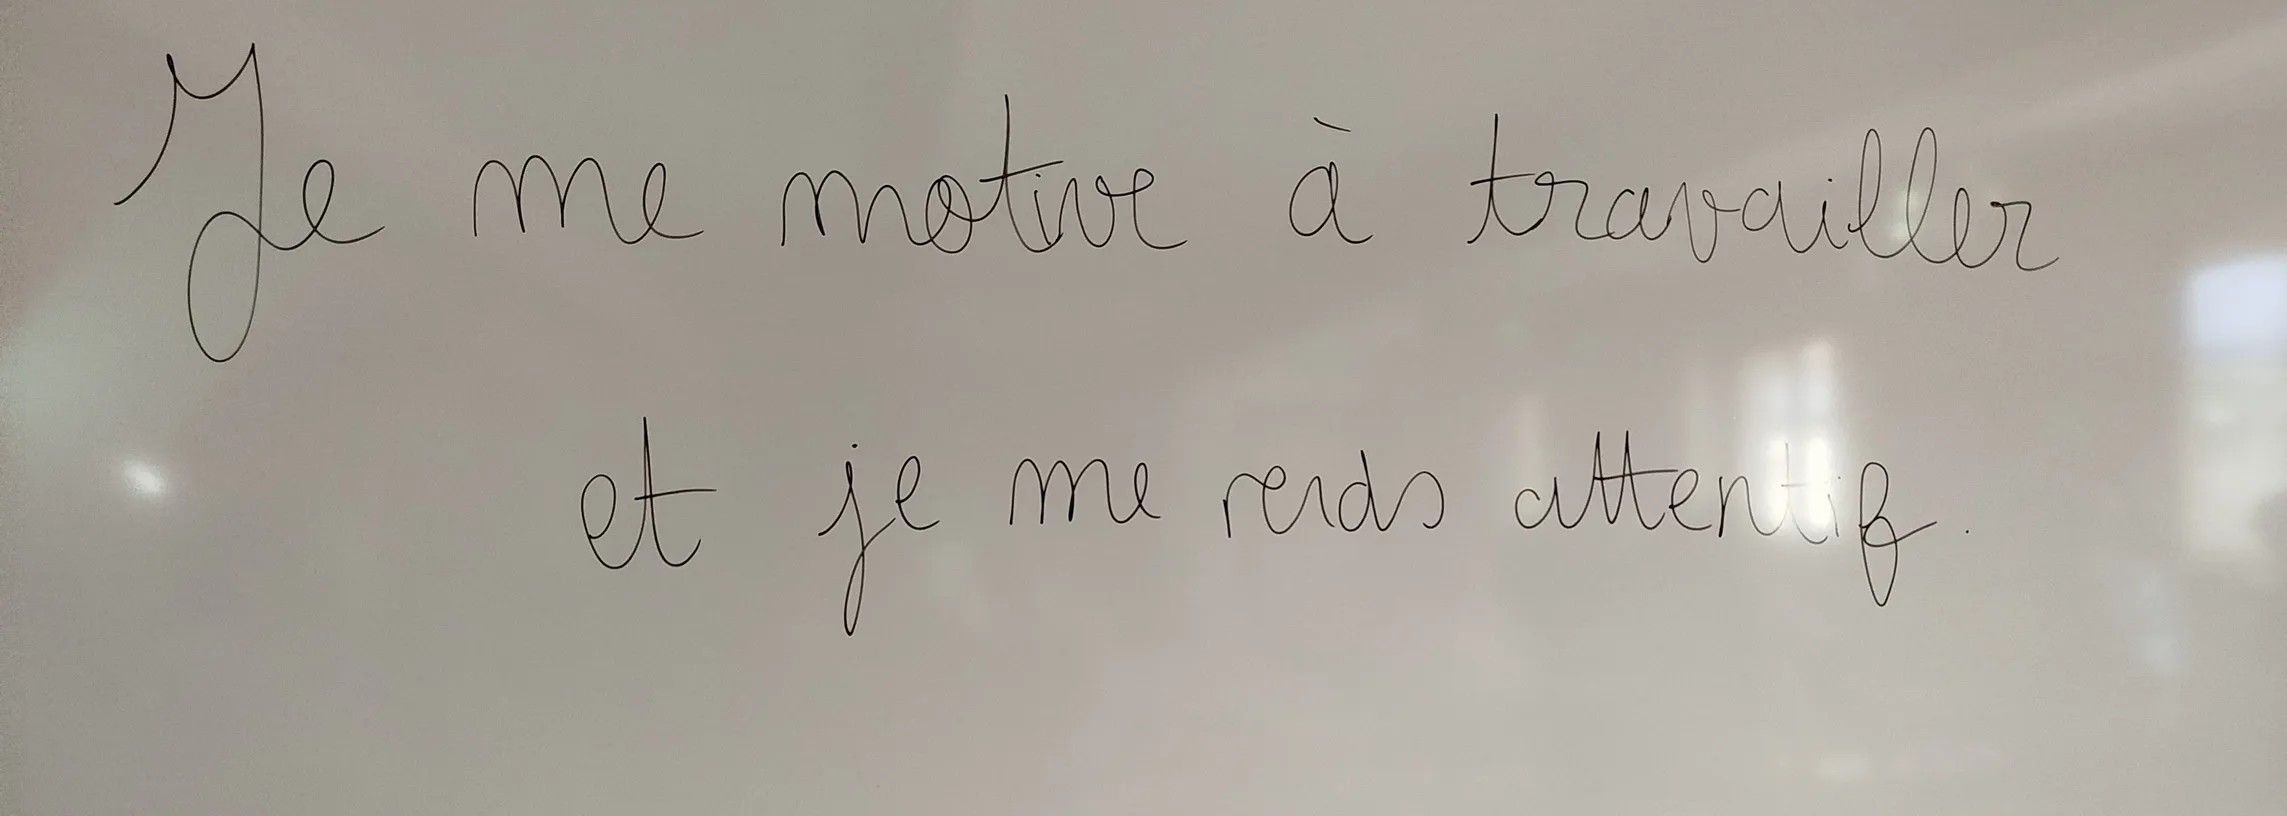 Je me motive à travailler
et je me rends attentif.